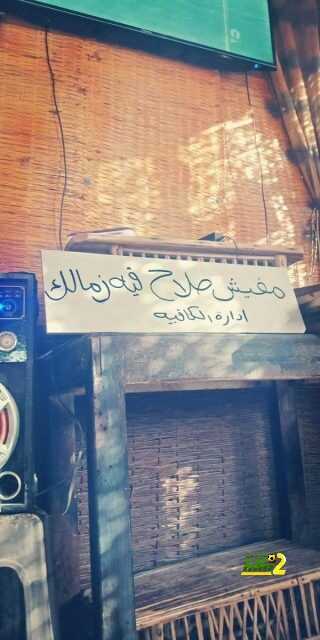 مفيش صلاح فيه زمالك
ادارة الكافيه
2